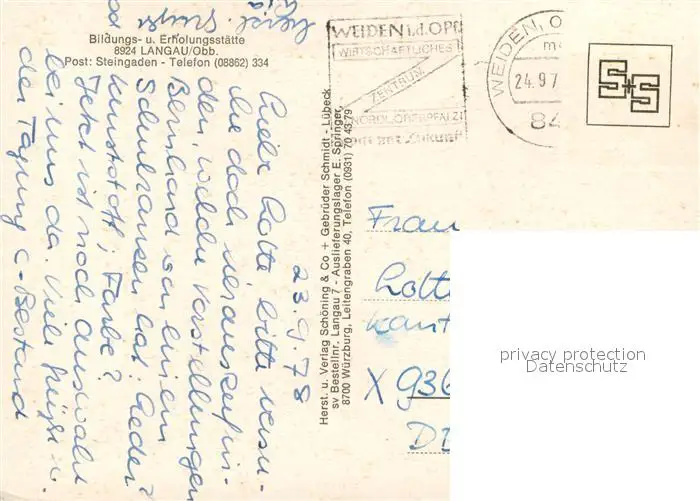 Bildungs- u. Erholungsstätte
8924 LANGAU/Obb.
Post: Steingaden - Telefon (08862) 334
23.9.78
Liebe Lotte bitte versu-
che doch herauszufin-
den, welche Vorstellungen
Bernhard von einem
Schulranzen hat: Leder?
Kunststoff; Farbe?
Jetzt ist noch Auswahl
bei uns da. Viele Grüße v.
der Tagung
Herst. u. Verlag Schöning & Co + Gebrüder Schmidt - Lübeck
sv Bestellnr. Langau 7 - Auslieferungslager E. Springer,
8700 Würzburg, Leitengraben 40, Telefon (0931) 70 43 79
WEIDEN I.D.OPF
WIRTSCHAFTLICHES
ZENTRUM
NORDL. OBERPFALZ
mit der Zukunft
WEIDEN, O
24.9.7
84
S+S
Frau
Lott
Kant
X 936
DD
privacy protection
Datenschutz